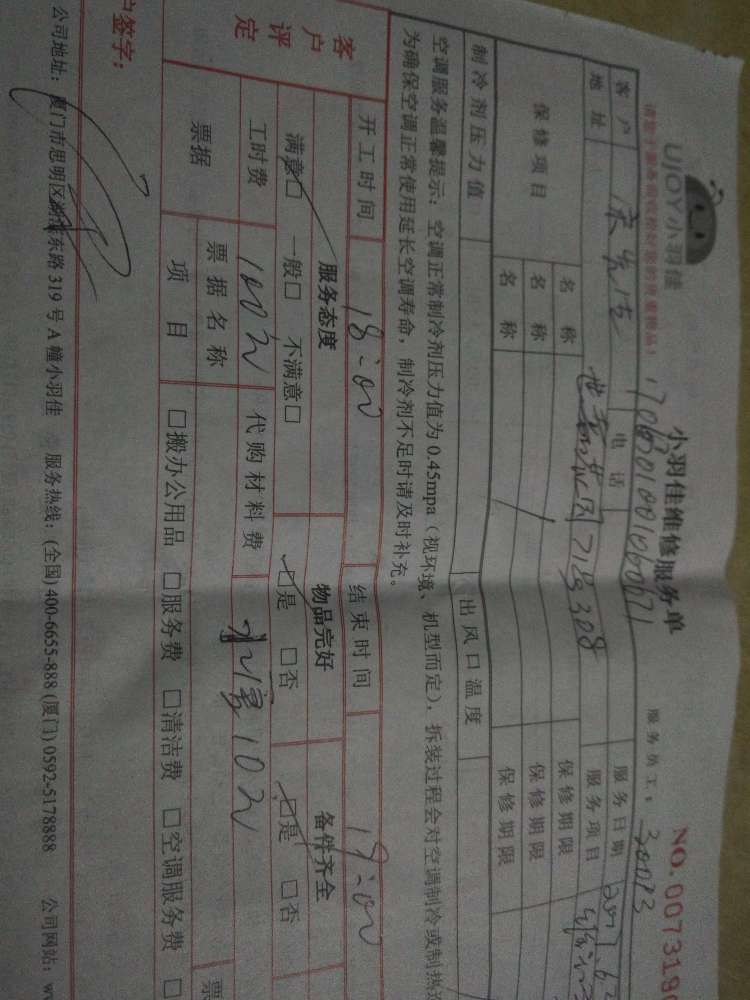 UJOY小羽佳
小羽佳维修服务单
NO.0073198
服务员工：30073
客户 电话 服务日期
地址 308 服务项目
保修项目 名称 保修期限
名称 保修期限
名称 保修期限
制冷剂压力值 出风口温度
空调服务温馨提示：空调正常制冷剂压力值为0.45mpa（视环境、机型而定），拆装过程会对空调制冷或制热
为确保空调正常使用延长空调寿命，制冷剂不足时请及时补充。
开工时间 18:00 结束时间 19:00
客户评定 服务态度 物品完好 备件齐全
满意□ 一般□ 不满意□ □是 □否 □是 □否
工时费 100元 代购材料费 10元
票据 票据名称 票
项目 □搬办公用品 □服务费 □清洁费 □空调服务费 □
户签字：
公司地址：厦门市思明区湖滨东路319号A幢小羽佳 服务热线：(全国)400-6655-888 (厦门)0592-5178888 公司网站：w